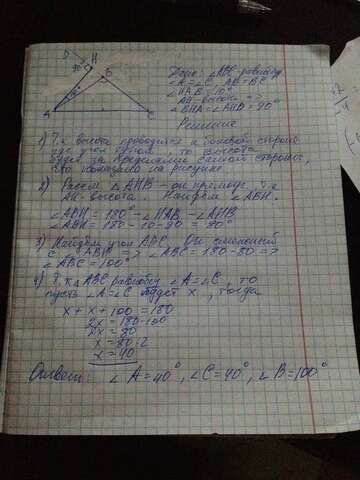 D H
90°
B
10°
A C
Дано: ∠ABC-равнобед
∠A=∠C AB=BC
∠HAB=10°
AH-высота
∠BHA=∠AHB=90°
Решение
1) Т.к высота проводится к боковой стороне
где угол тупой, то высота
будет за пределами самой стороны,
это показано на рисунке
2) Рассм. △AHB - он прямоуг. т.к
AH-высота. Найдём ∠ABH.
∠ABH = 180° - ∠HAB - ∠AHB
∠ABH = 180 - 10 - 90 = 80°
3) Найдём угол ABC. Он смежный
с ∠ABH => ∠ABC = 180 - 80 =>
∠ABC = 100°
4) Т.к △ABC равнобед ∠A=∠C, то
пусть ∠A=∠C будет x, тогда
x + x + 100 = 180
2x = 180 - 100
2x = 80
x = 80:2
x = 40
Ответ: ∠A=40°, ∠C=40°, ∠B=100°